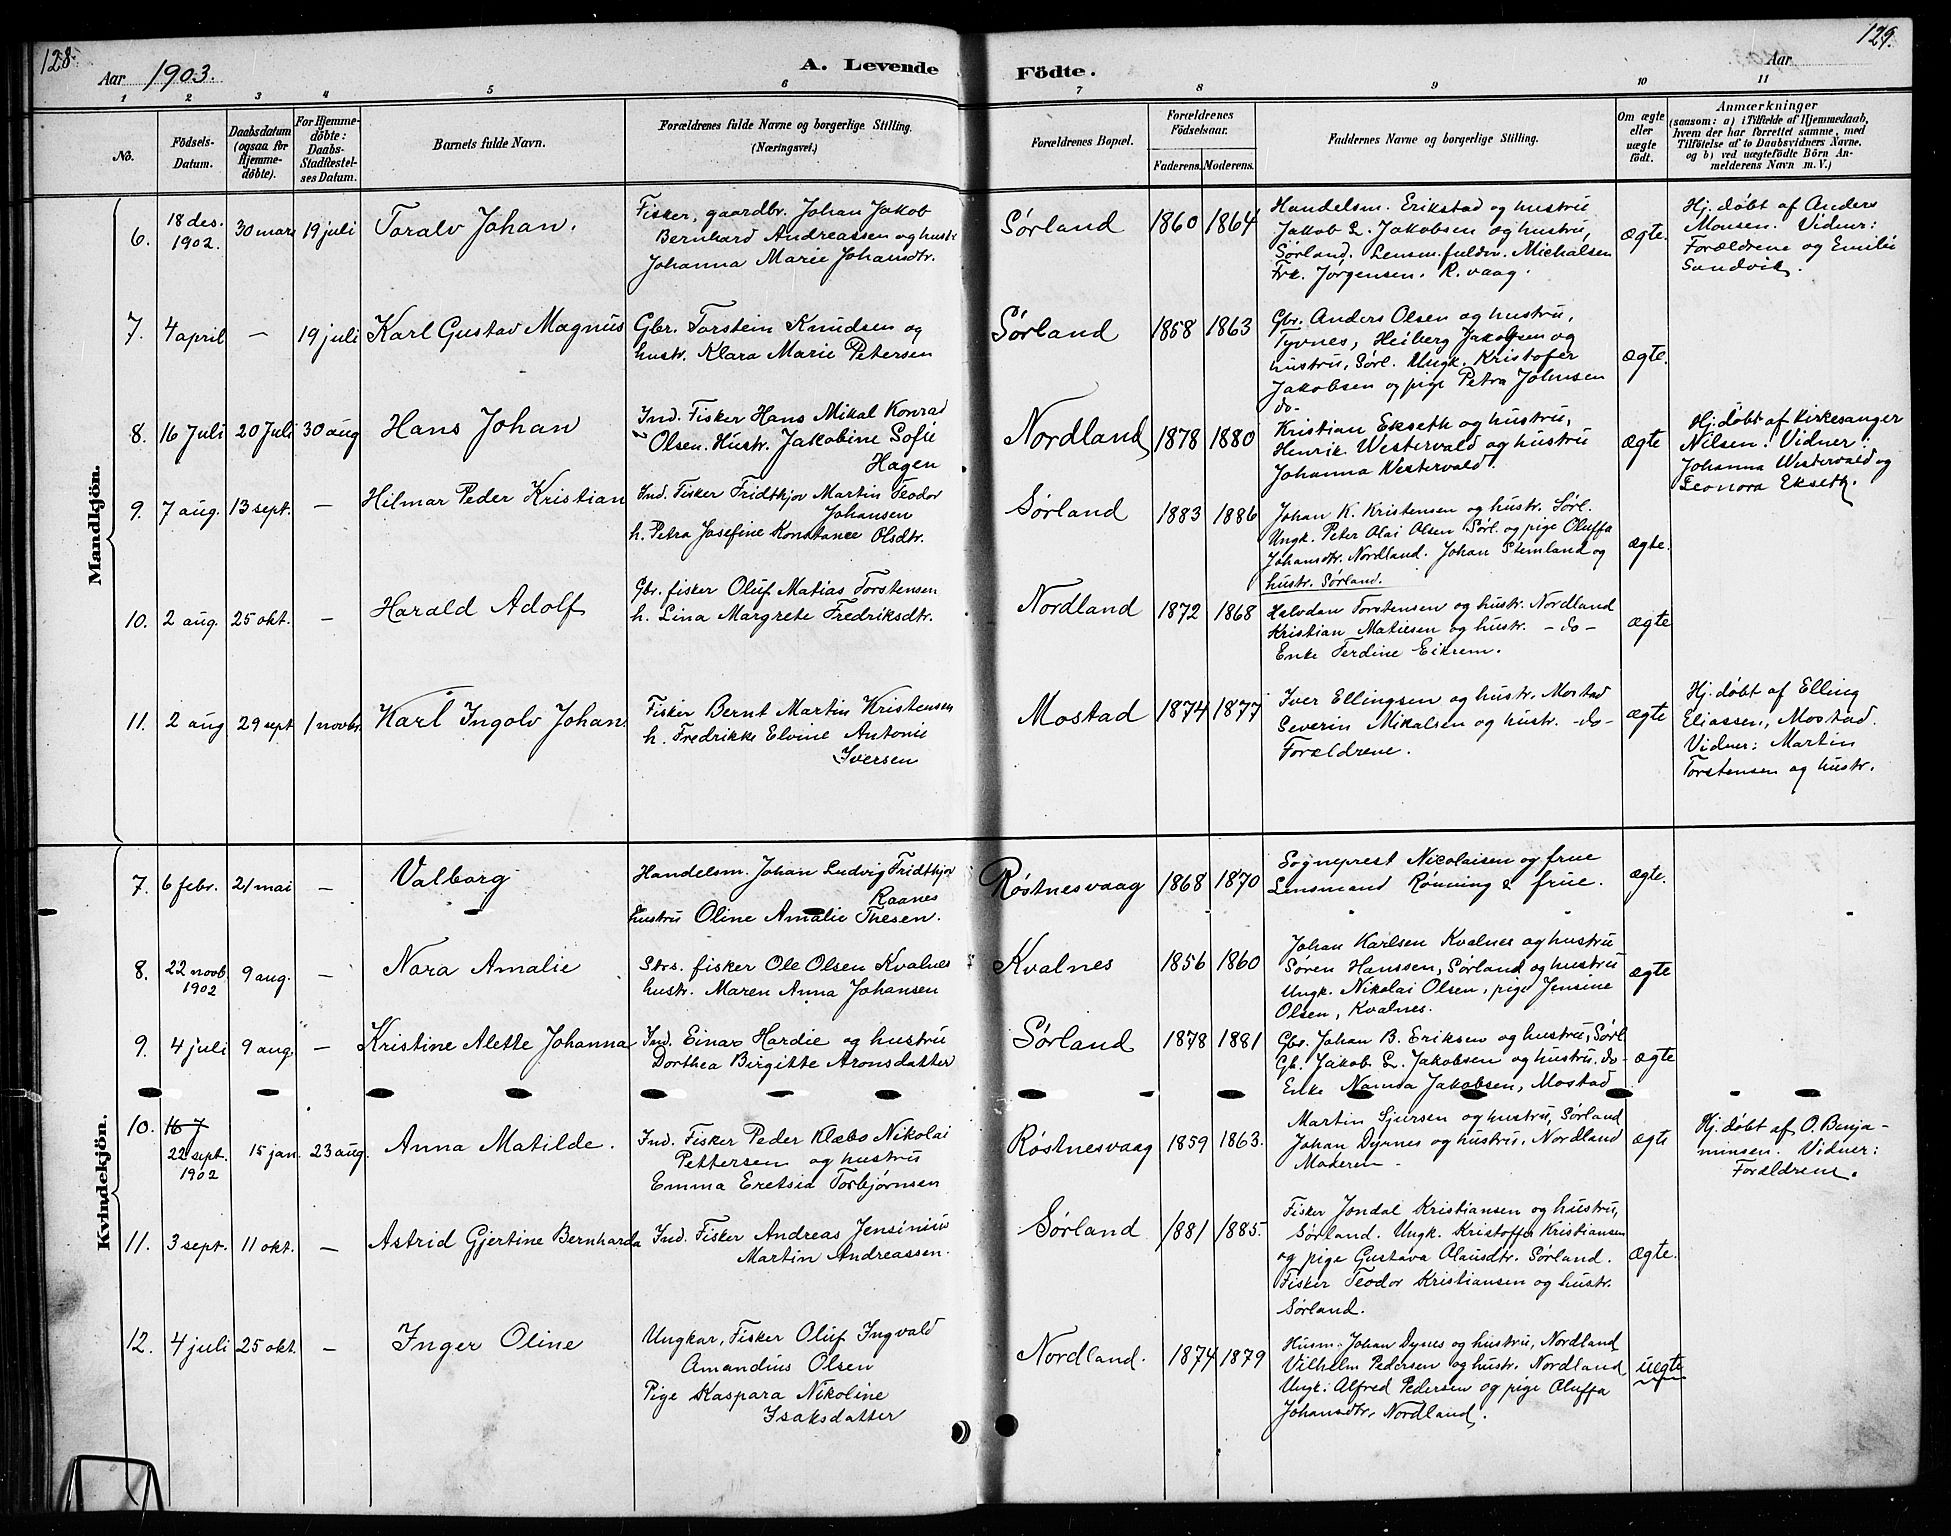 128.
129.
Aar 1903.
A. Levende Födte.
Aar
1 2 3 4 5 6 7 8 9 10 11
No.
Födsels-Datum.
Daabsdatum (ogsaa for Hjemmedöbte).
For Hjemmedöbte: Daabs-Stadfæstelses Datum.
Barnets fulde Navn.
Forældrenes fulde Navne og borgerlige Stilling. (Næringsvei.)
Forældrenes Bopæl.
Forældrenes Födselsaar.
Faderens. Moderens.
Faddernes Navne og borgerlige Stilling.
Om ægte eller uægte födt.
Anmærkninger
(saasom: a) i Tilfælde af Hjemmedaab, hvem der har forrettet samme, med Tilföielse af to Daabsvidners Navne. og b) ved uægtefödte Börn Anmelderens Navn m. V.)
Mandkjön.
6. 18 des. 1902. 30 mars 19 juli Toralv Johan.
Fisker, gaardbr. Johan Jakob
Bernhard Andreassen og hustr
Johanna Marie Johansdtr.
Sørland 1860 1864
Handelsm. Erikstad og hustru
Jakob L. Jakobsen og hustru,
Sørland. Lensm.fuldm. Michalsen
Frk. Jørgensen. R. vaag.
ægte.
Hj. døbt af Anders
Monsen. Vidner:
Forældrene og Emilie
Sandvik.
7. 4 april — 19 juli Karl Gustav Magnus
Gbr. Torstein Knudsen og
hustr. Klara Marie Petersen
Sørland 1858 1863
Gbr. Anders Olsen og hustru,
Tyvnes, Heiberg Jakobsen og
hustru, Sørl. Ungk. Kristofer
Jakobsen og pige Petra Johnsen
do-
ægte.
8. 16 Juli 20 Juli 30 aug Hans Johan
Ind. Fisker Hans Mikal Konrad
Olsen. Hustr. Jakobine Sofie
Hagen
Nordland 1878 1880
Kristian Ekseth og hustru,
Henrik Westervald og hustru
Johanna Westervald.
ægte
Hj. døbt af Kirkesanger
Nilsen. Vidner:
Johanna Westervald og
Leonora Ekseth.
9. 7 aug. 13 sept. — Hilmar Peder Kristian
Ind. Fisker Fridtkjov Martin Teodor
Johansen
h. Petra Josefine Konstance Olsdtr.
Sørland 1883 1886
Johan K. Kristensen og hustr. Sørl.
Ungk. Peter Olai Olsen Sørl. og pige Oluffa
Johansdtr. Nordland. Johan Stemland og
hustr. Sørland.
ægte.
10. 2 aug. 25 okt. — Harald Adolf
Gbr. fisker Oluf Matias Torstensen
h. Lina Margrete Fredriksdtr.
Nordland 1872 1868
Halvdan Torstensen og hustr. Nordland
Kristian Matiesen og hustr. -do-
Enke Ferdine Eikrem.
ægte
11. 2 aug 29 sept 1 novbr. Karl Ingolv Johan
Fisker Bernt Martin Kristensen
h. Fredrikke Elvine Antonie
Iversen
Mostad 1874 1877
Iver Ellingsen og hustr. Mostad
Severin Mikalsen og hustr. -do-
Forældrene.
ægte
Hj. døbt af Elling
Eliassen, Mostad.
Vidner: Martin
Torstensen og hustr.
Kvindekjön.
7. 6 febr. 21 mai — Valborg
Handelsm. Johan Ludvig Fridthjov
Raanes
hustru Oline Amalie Thesen.
Røstnesvaag 1868 1870
Sogneprest Nicolaisen og frue
Lensmand Rønning & frue.
ægte.
8. 22 novb. 1902 9 aug. — Nora Amalie
Strs. fisker Ole Olsen Kvalnes
hustr. Maren Anna Johansen
Kvalnes 1856 1860
Johan Karlsen Kvalnes og hustru
Søren Hanssen, Sørland og hustru
Ungk. Nikolai Olsen, pige Jensine
Olsen, Kvalnes.
ægte
9. 4 juli 9 aug. — Kristine Alette Johanna
Ind. Einar Hardie og hustru
Dorthea Birgitte Aronsdatter
Sørland 1878 1881
Gbr. Johan B. Eriksen og hustru, Sørl
Gb. Jakob L. Jakobsen og hustru. do-
Enke Nanna Jakobsen, Mostad
ægte
10. 16 7 22 sept. 1902 15 jan. 23 aug. Anna Matilde.
Ind. Fisker Peder Klæbo Nikolai
Pettersen og hustru
Emma Eretsia Torbjørnsen
Røstnesvaag 1859 1863.
Martin Sjursen og hustru, Sørland
Johan Dypnes og hustru, Nordland
Moderen -
ægte
Hj. døbt af O. Benja-
minsen. Vidner:
Forældrene.
11. 3 sept. 11 okt. — Astrid Gjertine Bernharda
Ind. Fisker Andreas Jensinius
Martin Andreassen.
Sørland 1881 1885.
Fisker Jondal Kristiansen og hustru,
Sørland. Ungk. Kristoffer Kristiansen
og pige Gustava Olausdtr. Sørland.
Fisker Teodor Kristiansen og hustr.
Sørland.
ægte.
12. 4 juli 25 okt. — Inger Oline
Ungkar, Fisker Oluf Ingvald
Amandius Olsen
Pige Kaspara Nikoline
Isaksdatter
Nordland. 1874 1879
Husm. Johan Dypnes og hustru, Nordland
Vilhelm Pedersen og hustr. Nordland
Ungk: Alfred Pedersen og pige Oluffa
Johansdtr, Nordland.
uegte